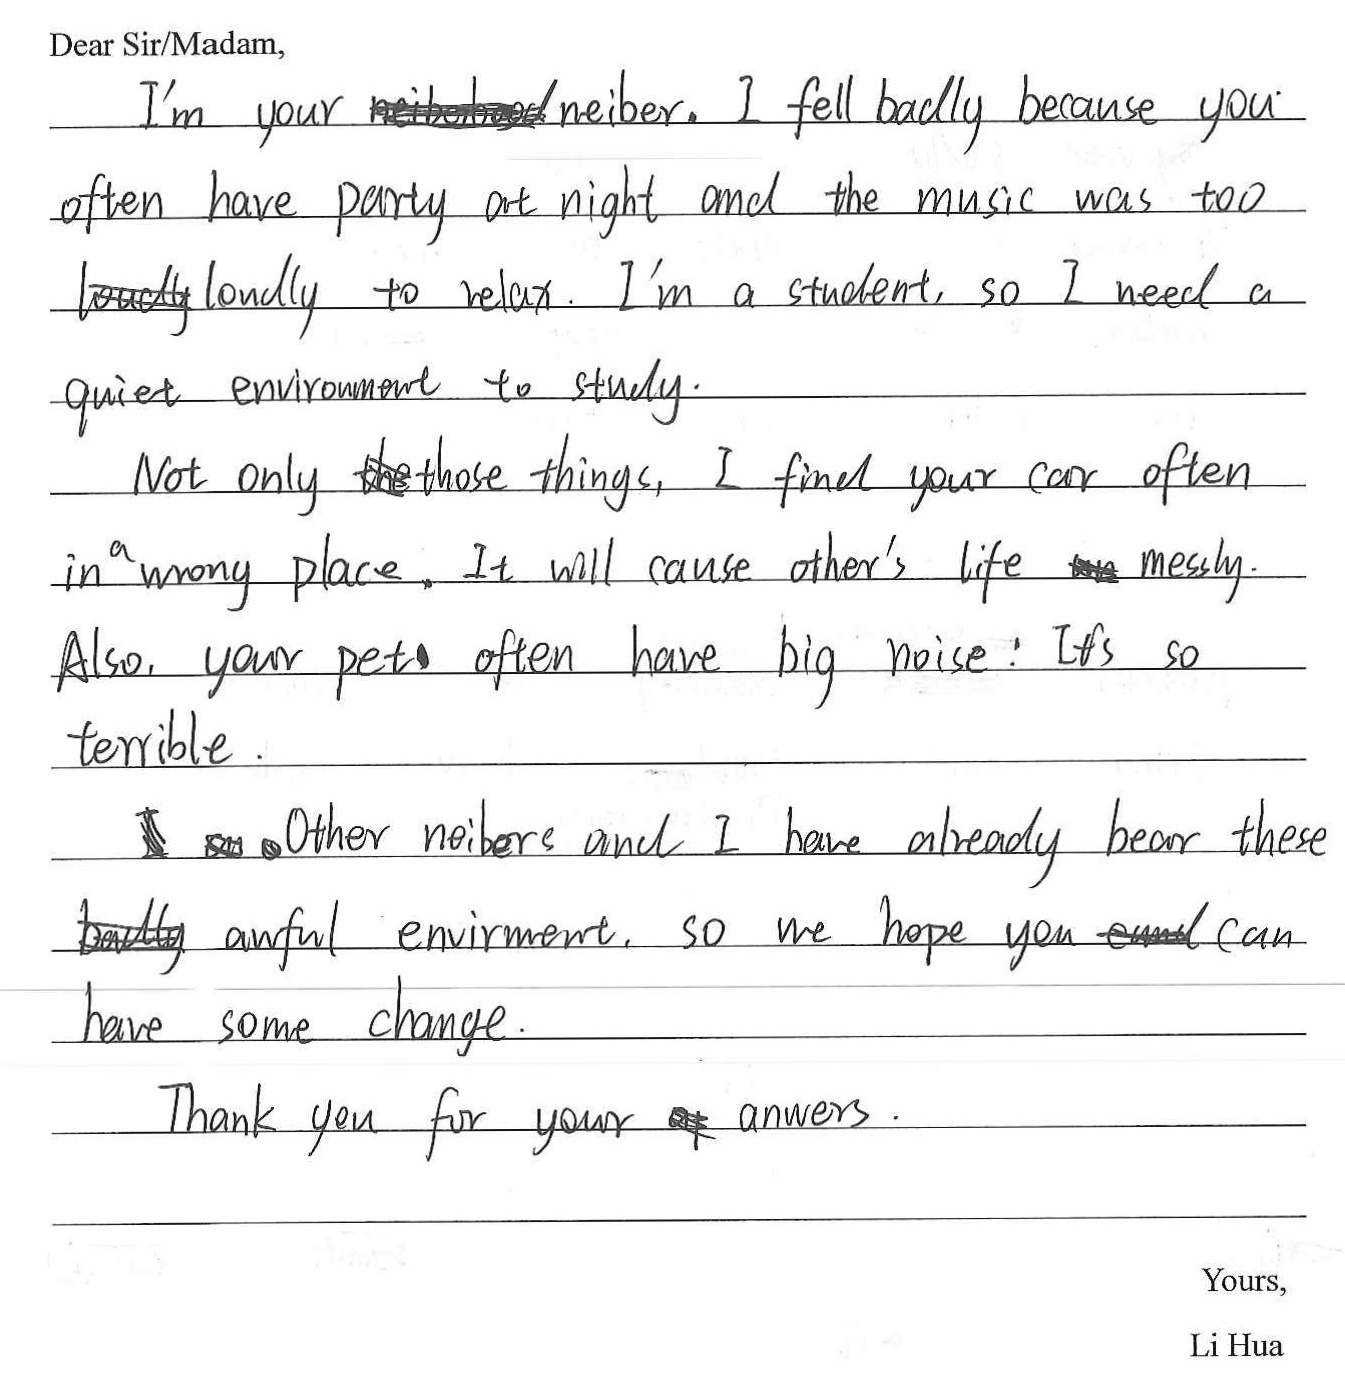 Dear Sir/Madam,
I'm your neiber. I fell badly because you
often have party at night and the music was too
loudly to relax. I'm a student, so I need a
quiet environment to study.
Not only those things, I find your car often
in a wrong place. It will cause other's life messly.
Also, your pets often have big noise! It's so
terrible.
Other neibers and I have already bear these
awful envirment, so we hope you can
have some change.
Thank you for your anwers.
Yours,
Li Hua